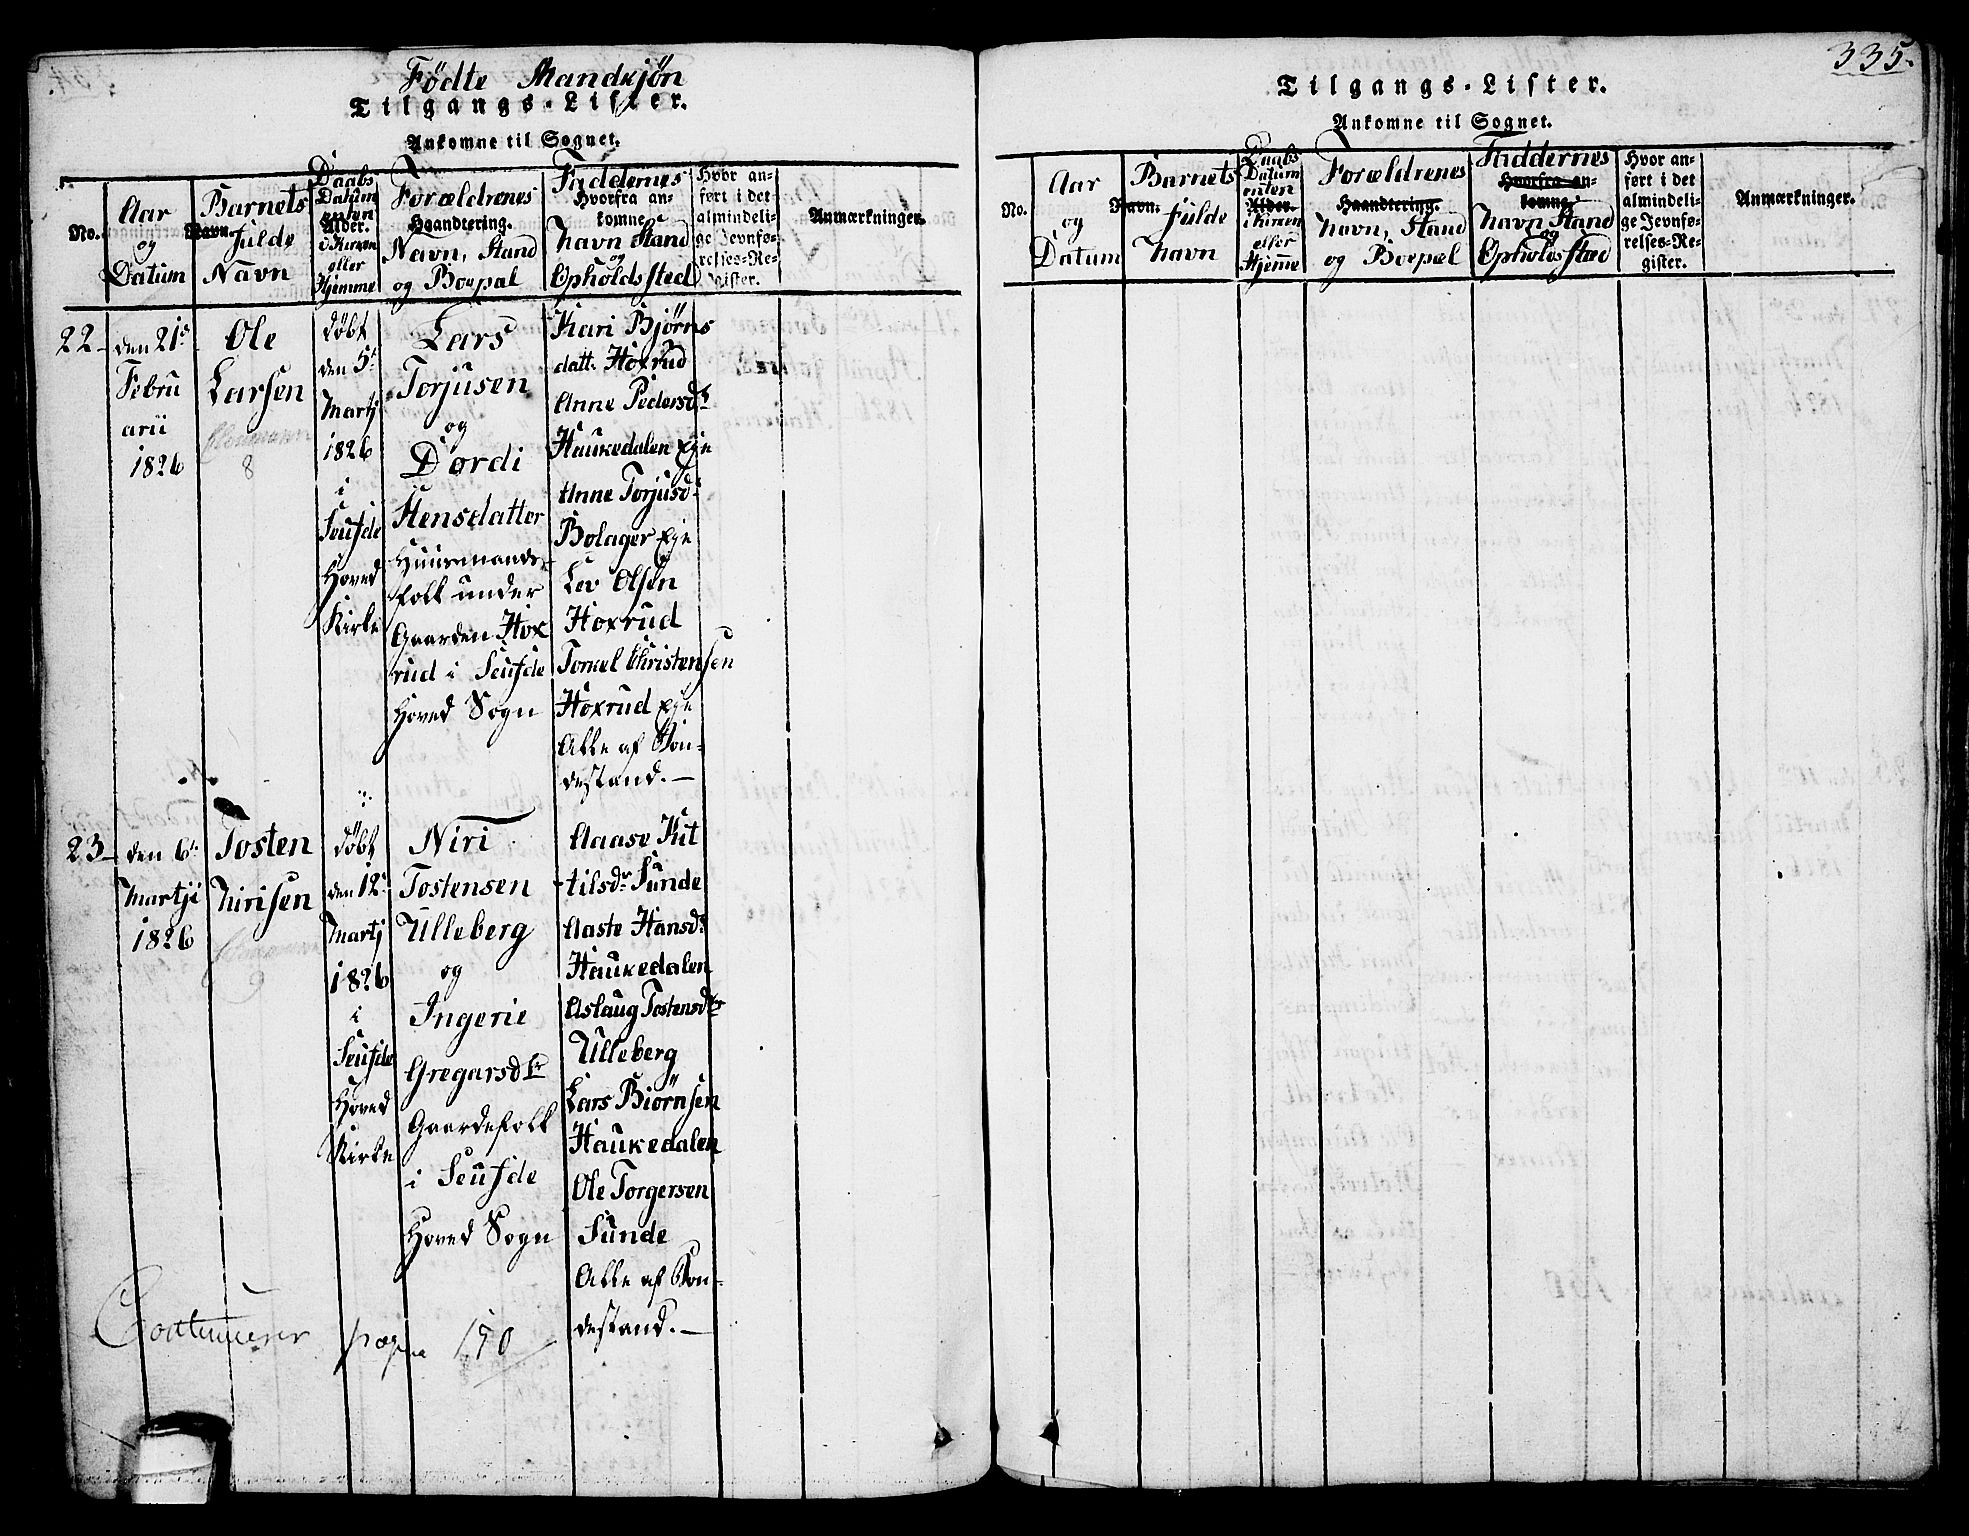 Fødte Mandkjøn
Tilgangs-Lister.
Ankomne til Sognet.
No.
Aar
og
Datum
Barnets
Navn. fulde
Navn
Daabs
Datum
enten
Alder.
i Kirken
eller
Hjemme
Forældrenes
Haandtering.
Navn, Stand
og Boepæl
Faddernes
Hvorfra an-
komne.
Navn Stand
og
Opholds sted
Hvor an-
ført i det
almindeli-
ge Jevnfø-
relses-Re-
gister.
Anmærkninger.
22
den 21s
Febru
arii
1826
Ole
Larsen
8
døbt
den 5t
Martj
1826
i
Seufde
Hoved
Kirke
Lars
Torjusen
og
Dordi
Hensdatter
Huusmands-
folk under
Gaarden Hox
rud i Seufde
Hoved Sogn
Kari Bjørns
datt. Hoxrud
Anne Pedersdr
Haukedalen Eje
Anne Torjusdr
Bolager Eje
Lev Olsen
Hoxrud
Torkel Christensen
Hoxrud Eje
Alle af Bon-
destand.—
23
den 6t
Martji
1826
Tosten
Nirisen
9
døbt
den 12t
Martj
1826
i
Seufde
Hoved
Kirke
Niri
Tostensen
Ulleberg
og
Ingerie
Gregarsdtr
Gaardefolk
i Seufde
Hoved Sogn
Aaase Kit
tilsdr Sunde
Aaste Hansdr
Haukedalen
Aslaug Tostensdtr
Ulleberg
Lars Biørnsen
Haukedalen
Ole Torgersen
Sunde
Alle af Bon-
destand.—
Continuerer pagina 190
335.
Tilgangs-Lister.
Ankomne til Sognet.
No.
Aar
og
Datum
Barnets
Navn. fulde
Navn
Daabs
Datum
enten
Alder.
i Kirken
eller
Hjemme
Forældrenes
Haandtering.
Navn, Stand
og Boepæl
Faddernes
Hvorfra an-
komne.
Navn Stand
og
Opholds Sted
Hvor an-
ført i det
almindeli-
ge Jevnfø-
relses-Re-
gister.
Anmærkninger.